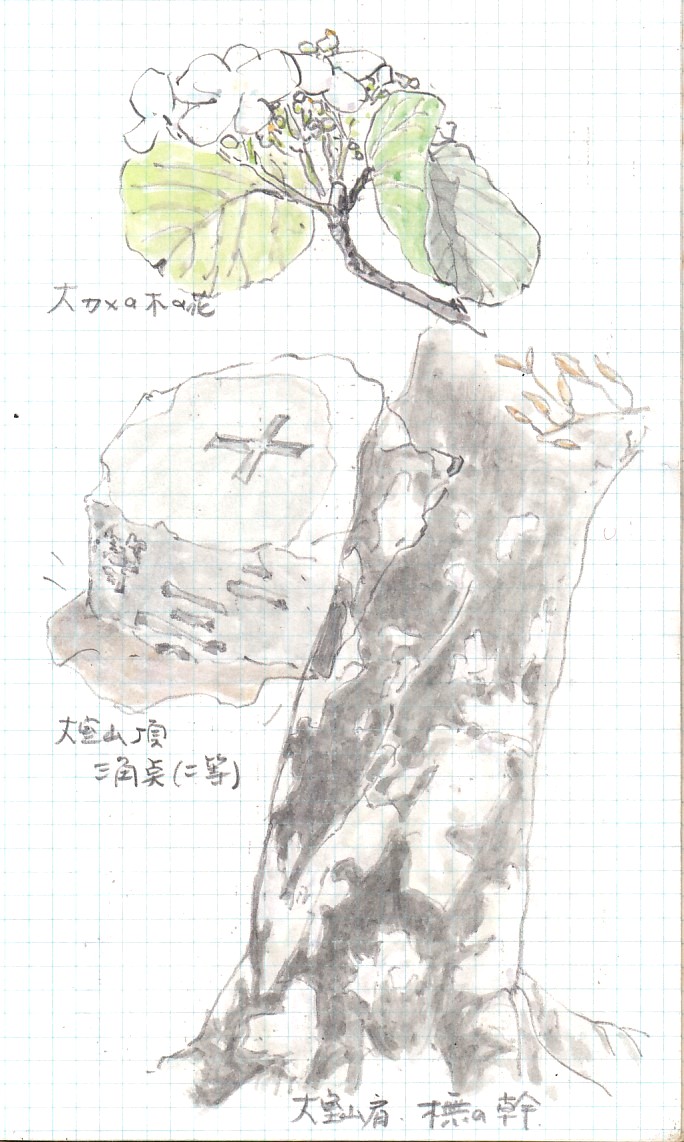 大カメの木の花
大室山頂
三角点(二等)
大室山肩 橅の幹